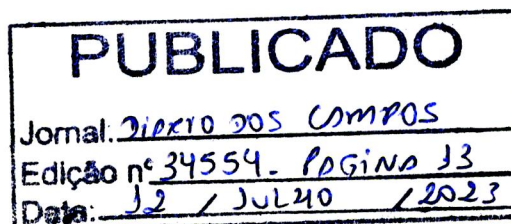 PUBLICADO
Jornal: DIÁRIO DOS CAMPOS
Edição nº 34554. PÁGINA 13
Data: 12 / JULHO / 2023